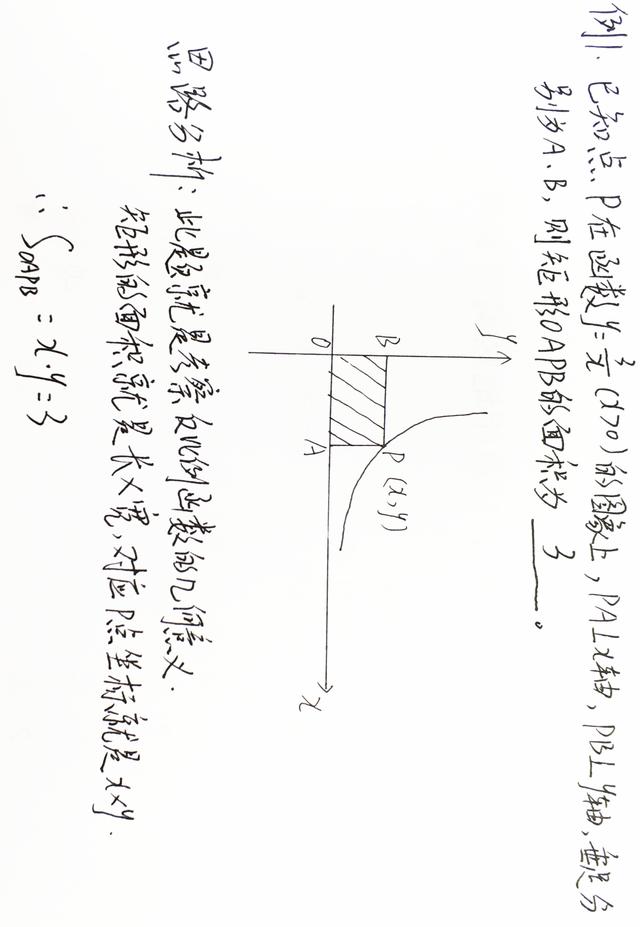 例1. 已知点P在函数y=3/x(x>0)的图象上, PA⊥x轴, PB⊥y轴, 垂足分
别为A、B, 则矩形OAPB的面积为 3 。
y
B
O
P (x,y)
A
x
思路分析: 此题就是考察反比例函数的几何意义.
矩形的面积就是长×宽, 对应P点坐标就是x×y.
∴ S_OAPB = x·y=3